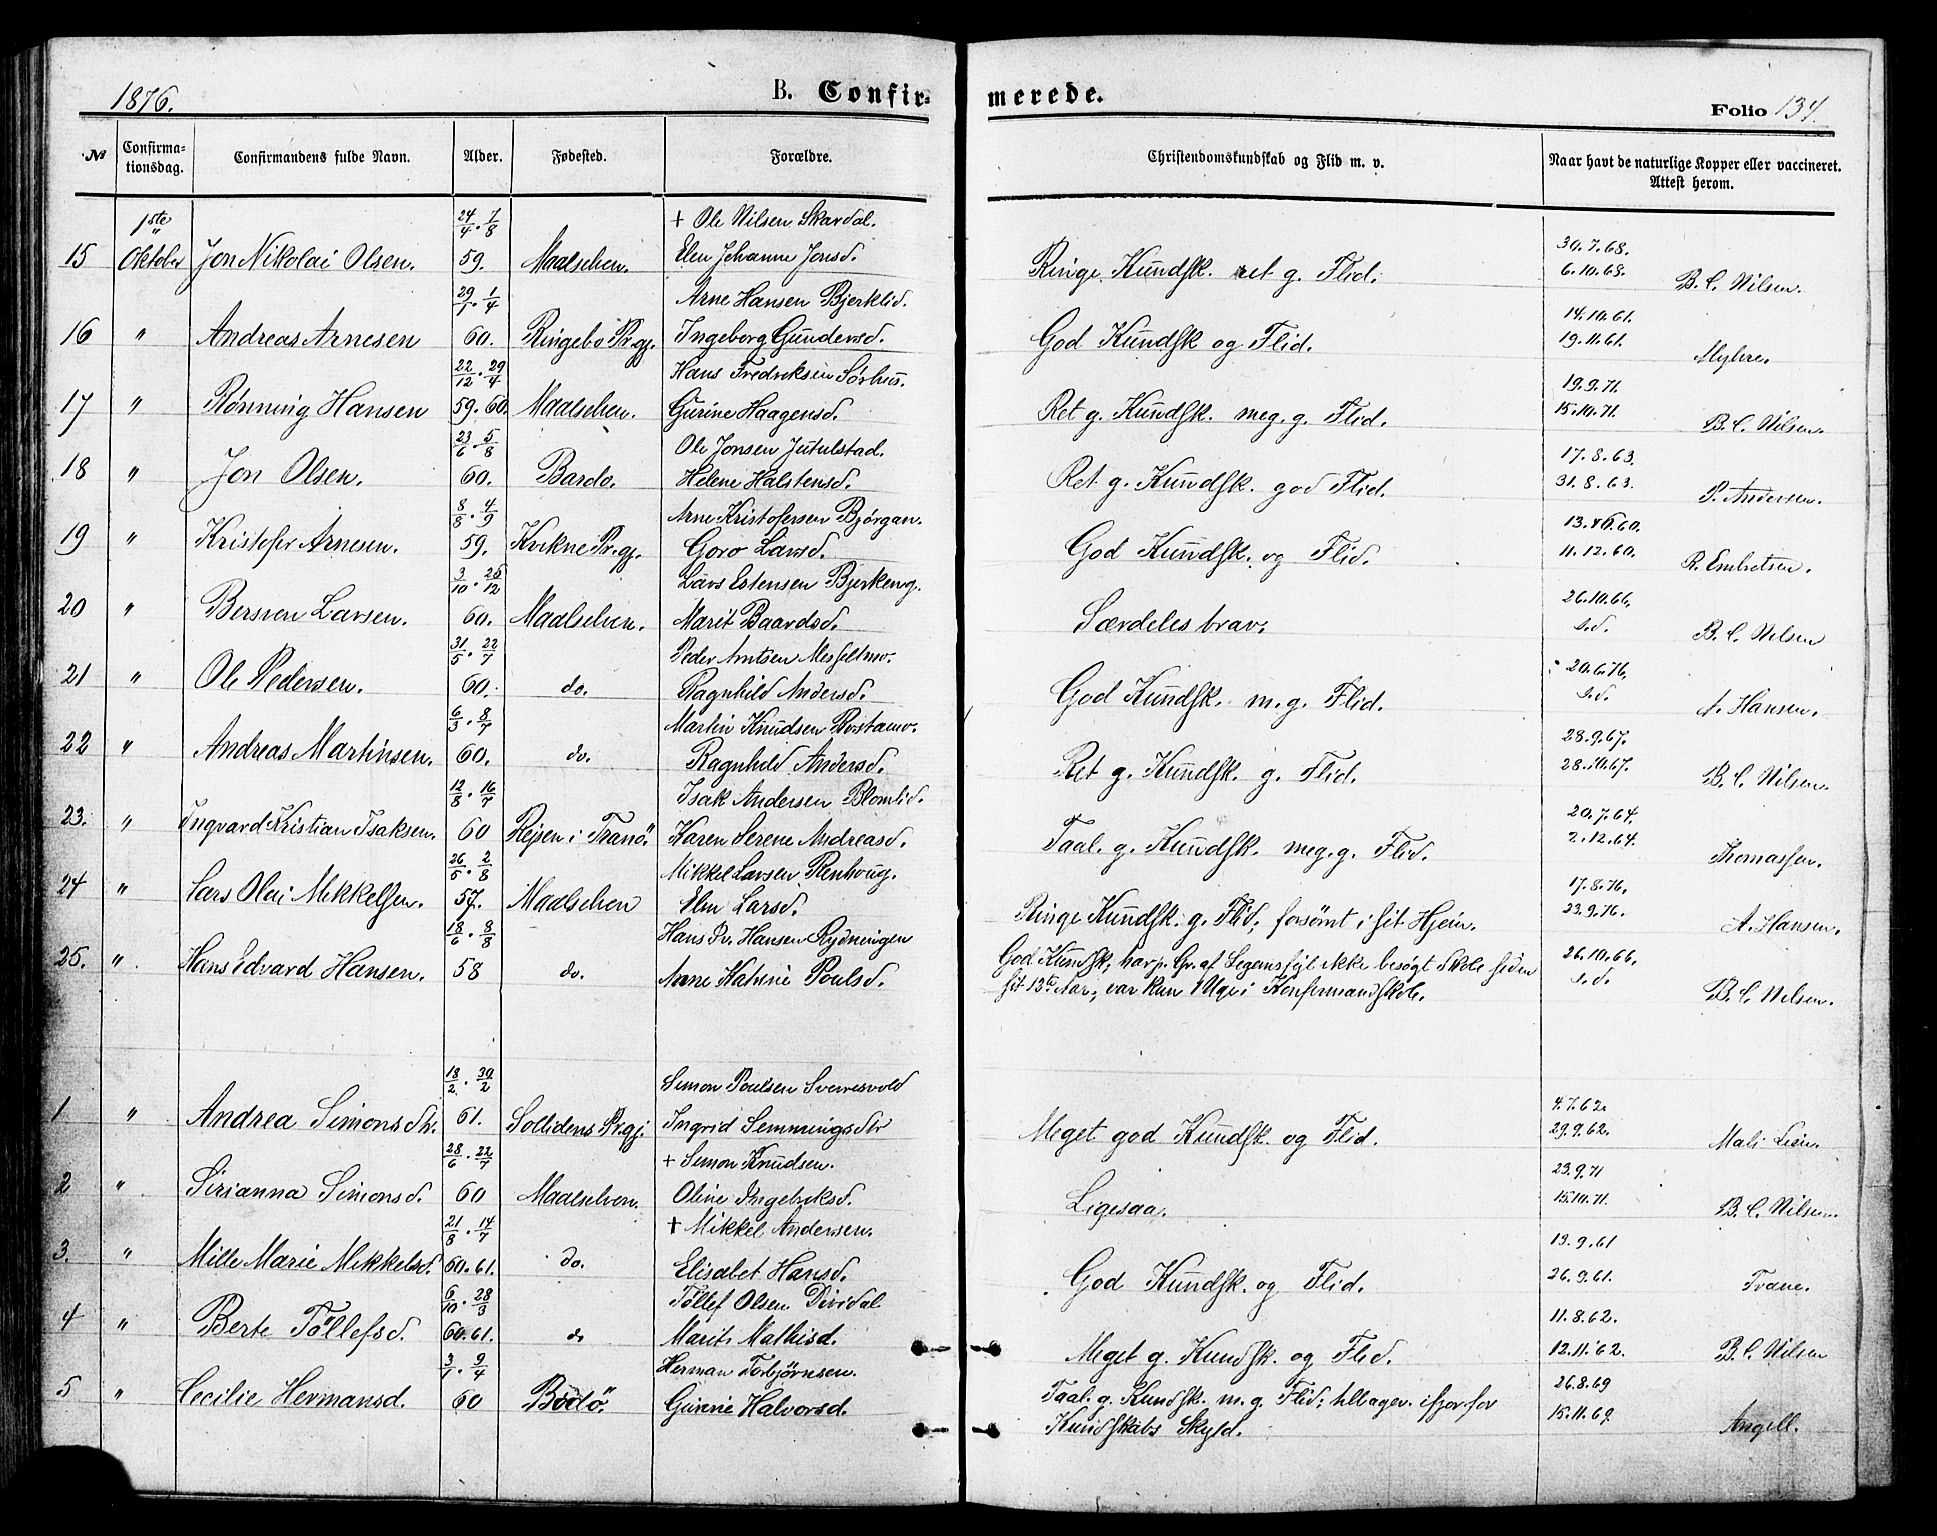 1876.
B. Confirmerede.
Folio 134.
№ Confirmationsdag. Confirmandens fulde Navn. Alder. Fødested. Forældre. Christendomskundskab og Flid m. v. Naar havt de naturlige Kopper eller vaccineret. Attest herom.
1ste 24/4 . 7/8 + Ole Nilsen Skardal. 30.7.68.
15 Oktober Jon Nikolai Olsen. 59. Maalselven. Elen Johanne Jonsd. Ringe Kundsk. ret g. Flid. 6.10.68. B. C. Nilsen.
29/1 . 1/4 Arne Hansen Bjerklid. 14.10.61.
16 " Andreas Arnesen 60. Ringebo Pr.gj. Ingeborg Gundersd. God Kundsk og Flid. 19.11.61. Myhre.
22/12 . 29/4 Hans Fredriksen Sørhus. 19.9.71.
17 " Rønning Hansen 59.60. Maalselven. Gurine Haagensd. Ret g. Kundsk. meg. g. Flid. 15.10.71. B. C. Nilsen.
23/6 . 5/8 Ole Jonsen Jutulstad. 17.8.63.
18 " Jon Olsen. 60. Bardo. Helene Halstensd. Ret g. Kundsk. god Flid. 31.8.63. P. Andersen.
8/8 . 4/9 Arne Kristofersen Bjørgan. 13. .60.
19 " Kristofer Arnesen. 59. Kvikne Pr.gj. Goro Larsd. God Kundsk. og Flid. 11.12.60. R. Embretsen.
3/10 . 26/12 Lars Estensen Bjerkeng. 26.10.66.
20 " Bersven Larsen. 60. Maalselven. Marit Baardsd. Særdeles brav. s.d. B. C. Nilsen
31/5 . 22/7 Peder Arntsen Messeltmo. 20.6.76.
21 " Ole Pedersen. 60. do. Ragnhild Andersd. God Kundsk. m. g. Flid. s.d. A. Hansen.
6/3 . 8/7 Martin Knudsen Rostamo. 28.9.67.
22 " Andreas Martinsen. 60. do. Ragnhild Andersd. Ret g. Kundsk. g. Flid. 28.10.67. B. C. Nilsen.
12/8 . 16/7 Isak Andersen Blomlid. 20.7.64.
23. " Ingvard Kristian Isaksen. 60 Rejsen i Tranö. Karen Serene Andreasd. Taal. g. Kundsk. meg. g. Flid. 2.12.64. Thomassen.
26/5 . 2/8 Mikkel Larsen Renhoug. 17.8.76.
24 " Lars Olai Mikkelsen. 57. Maalselven Elen Larsd. Ringe Kundsk. g. Flid; forsömt i sit Hjem. 23.9.76. A. Hansen.
18/6 . 8/8 Hans Pr. Hansen Rydningen
25. " Hans Edvard Hansen. 58 do. Anne Katrine Poulsd. God Kundsk; har p. Gr. af Legemsfejl ikke besøgt Skole siden 26.10.66.
sit 13de Aar; var kun 1 Uge i Konfirmandskole. s.d. B. C. Nilsen.
18/2 . 30/2 Simon Poulsen Sverresvold 4.7.62.
1 " Andrea Simonsdtr. 61. Sollidens Pr.gj. Ingrid Semmingsdtr Meget god Kundsk. og Flid. 29.9.62. Mali Lien.
28/6 . 22/7 + Simon Knudsen. 23.9.71
2 " Sirianna Simonsd. 60 Maalselven. Oline Ingebriksd. Ligesaa. 15.10.71. B. C. Nilsen.
21/8 . 14/7 + Mikkel Andersen. 13.9.61
3. " Mille Marie Mikkelsd. 60.61. do. Elisabet Hansd. God Kundsk. og Flid. 26.9.61. Tvane.
6/10 . 28/3 Töllef Olsen Dividal 11.8.62.
4 " Berte Töllefsd. 60.61. do Marit Mathisd. Meget g. Kundsk. og Flid. 12.11.62. B. C. Nilsen
3/1 . 9/4 Herman Torbjørnsen. 26.8.69
5 " Cecilie Hermansd. 60 Bodö. Gurine Halvorsd. Taal. g. Kundsk. m. g. Flid; tilbagev. ifjor for
Kundskabs Skyld. 15.11.69. Angell.